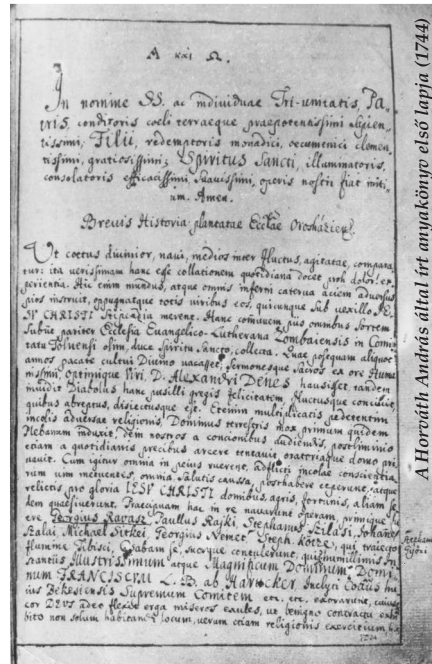 A και Ω.
In nomine SS. ac individuae Tri-unitatis, Pa-
tris, conditoris coeli terraeque praepotentissimi sapien-
tissimi, Filii, redemptoris monadici, oecumenici clemen-
tissimi, gratiosissimi; Spiritus Sancti, illuminatoris,
consolatoris efficacissimi suavissimi, operis nostri fiat initi-
um. Amen.
Brevis Historia plantatae Eccl͞ae Orosháziens.
Ut coetus divinior, navi, medios inter fluctus, agitatae, compara-
tur: ita verissimam hanc esse collationem quotidiana docet proh dolor! ex-
perientia. Hic enim mundus, atque omnis inferni caterva aciem adversus
pios instruit, oppugnatque totis viribus eos, quicunque sub vexillo JE-
SU CHRISTI stipendia merent. Hanc communem piis omnibus sortem
subiit pariter Ecclesia Evangelico-Lutherana Zombaiensis in Comi-
tatu Tolnensi olim, duce Spiritu Sancto, collecta. Quae posteaquam aliquot
annos pacate cultui Divino vacasset, sermonesque sacros ex ore Huma-
nissimi, optimique Viri, D. Alexandri Dénes hausisset, tandem
invidit Diabolus hanc pusilli gregis felicitatem fluctusque conciliavit,
quibus abreptus, disiectusque est. Etenim multiplicatis pedetentim
incolis adversae religionis, Dominus terrestris mox primum quidem
Plebanum induxit, dein nostros a concionibus audiendis, postliminio
etiam a quotidianis precibus arcere tentavit oratoriaque domo pri-
vavit. Cum igitur omnia in peius ruerent, Afflicti incolae conscientia-
rum vim metuentes, omnia salutis caussa, posthabere ceperunt, atque
relictis pro gloria IESU CHRISTI domibus, agris, fortunis, aliam se-
dem quaesiverunt. Praecipuam hac in re navarunt operam, primique fu-
ere Georgius Ravasz, Paullus Rajki, Stephanus Szilási, Johannes
Szalai, Michael Sitkei, Georgius Nemet, Steph. Kötze, qui traiecto
flumine Tibisci, Csabam se, suosque contulerunt, quique humillimis in-
stantiis Illustrissimum atque Magnificum Dominum, Domi-
num FRANCISCUM L. B. ab HARUCKER, Inclyti Co͞ttus hu-
ius Bekesiensis Supremum Comitem etc. etc. exorarunt, cuius
cor DEUS adeo flexit erga miseros exules, ut benigno contractu exhi-
bito non solum habitandi locum, verum etiam religionis exercitium li-
Stephan
Győri
A Horváth András által írt anyakönyv első lapja (1744)